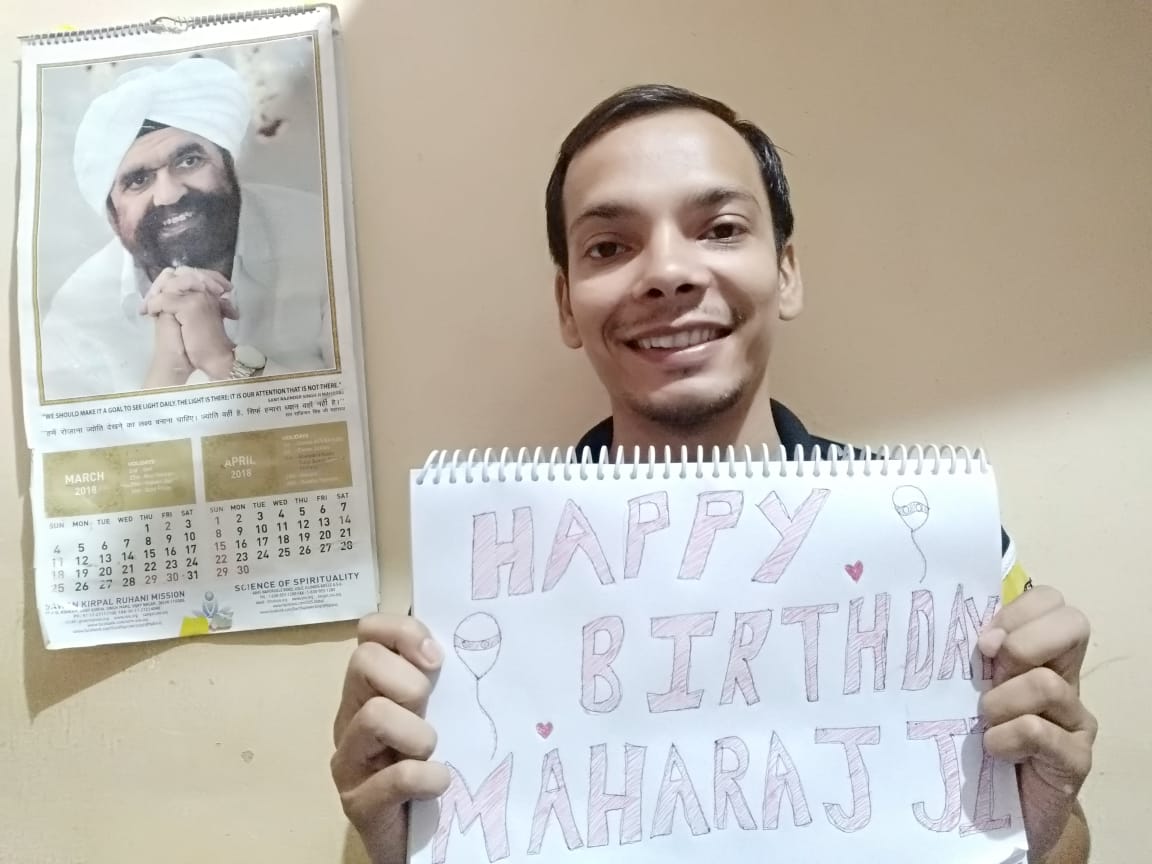 "WE SHOULD MAKE IT A GOAL TO SEE LIGHT DAILY. THE LIGHT IS THERE; IT IS OUR ATTENTION THAT IS NOT THERE."
SANT RAJINDER SINGH JI MAHARAJ
"हमें रोज़ाना ज्योति देखने का लक्ष्य बनाना चाहिए। ज्योति वहीं है, सिर्फ हमारा ध्यान वहाँ नहीं है।"
संत राजिन्दर सिंह जी महाराज
MARCH
2018
HOLIDAYS
SUN MON TUE WED THU FRI SAT
1 2 3
4 5 6 7 8 9 10
11 12 13 14 15 16 17
18 19 20 21 22 23 24
25 26 27 28 29 30 31
APRIL
2018
HOLIDAYS
SUN MON TUE WED THU FRI SAT
1 2 3 4 5 6 7
8 9 10 11 12 13 14
15 16 17 18 19 20 21
22 23 24 25 26 27 28
29 30
SAWAN KIRPAL RUHANI MISSION
SCIENCE OF SPIRITUALITY
HAPPY
BIRTHDAY
MAHARAJ JI